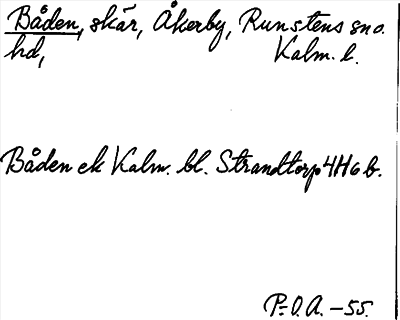 Båden, skär, Åkerby, Runstens sn o.
hd, Kalm. l.
Båden ek Kalm. bl. Strandtorp 4H6b.
P=O.A. -55.